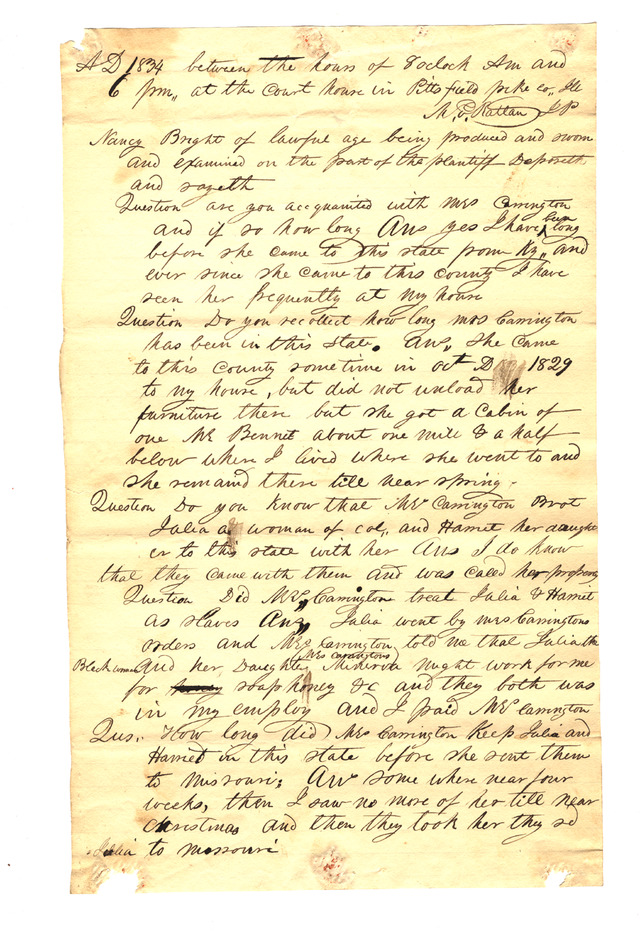 AD 1834 between the hours of 7 oclock Am and
6 pm,, at the Court house in Pittsfield pike co,, Ill
M. E. Rattan J P
Nancy Bright of lawful age being produced and sworn
and examined on the part of the plantiff Deposeth
and sayeth
Question are you accquainted with Mrs Carrington
and if so how long Ans yes I have been long
before she came to this state from Ky,, and
ever since she came to this county I have
seen her frequently at my house
Question Do you recollect how long mrs Carrington
has been in this state. Ans, She came
to this County sometime in Oct 1829
to my house, but did not unload her
furniture there but she got a Cabin of
one Mr Bennet about one mile & a half
below where I lived where she went to and
she remaind there till near spring -
Question Do you know that Mrs Carrington Brot
Julia a woman of col,, and Harriet her daugh
er to this state with her Ans I do know
that they came with them and was caled her propeny
Question Did Mrs,, Carrington treat Julia & Harriet
as slaves Ans,, Julia went by mrs Carringtons
orders and Mrs Carrington told me that Julia the
Black woman and her Daughter Mrs Carringtons Minerva might work for me
for honey soap honey &c and they both was
in my employ and I paid Mrs Carrington
Qus,, How long did Mrs Carrington Keep Julia and
Harriet in this state before she sent them
to missouri; Ans some where near four
weeks, then I saw no more of her till near
christmas and then they took her they sd
Julia to missouri